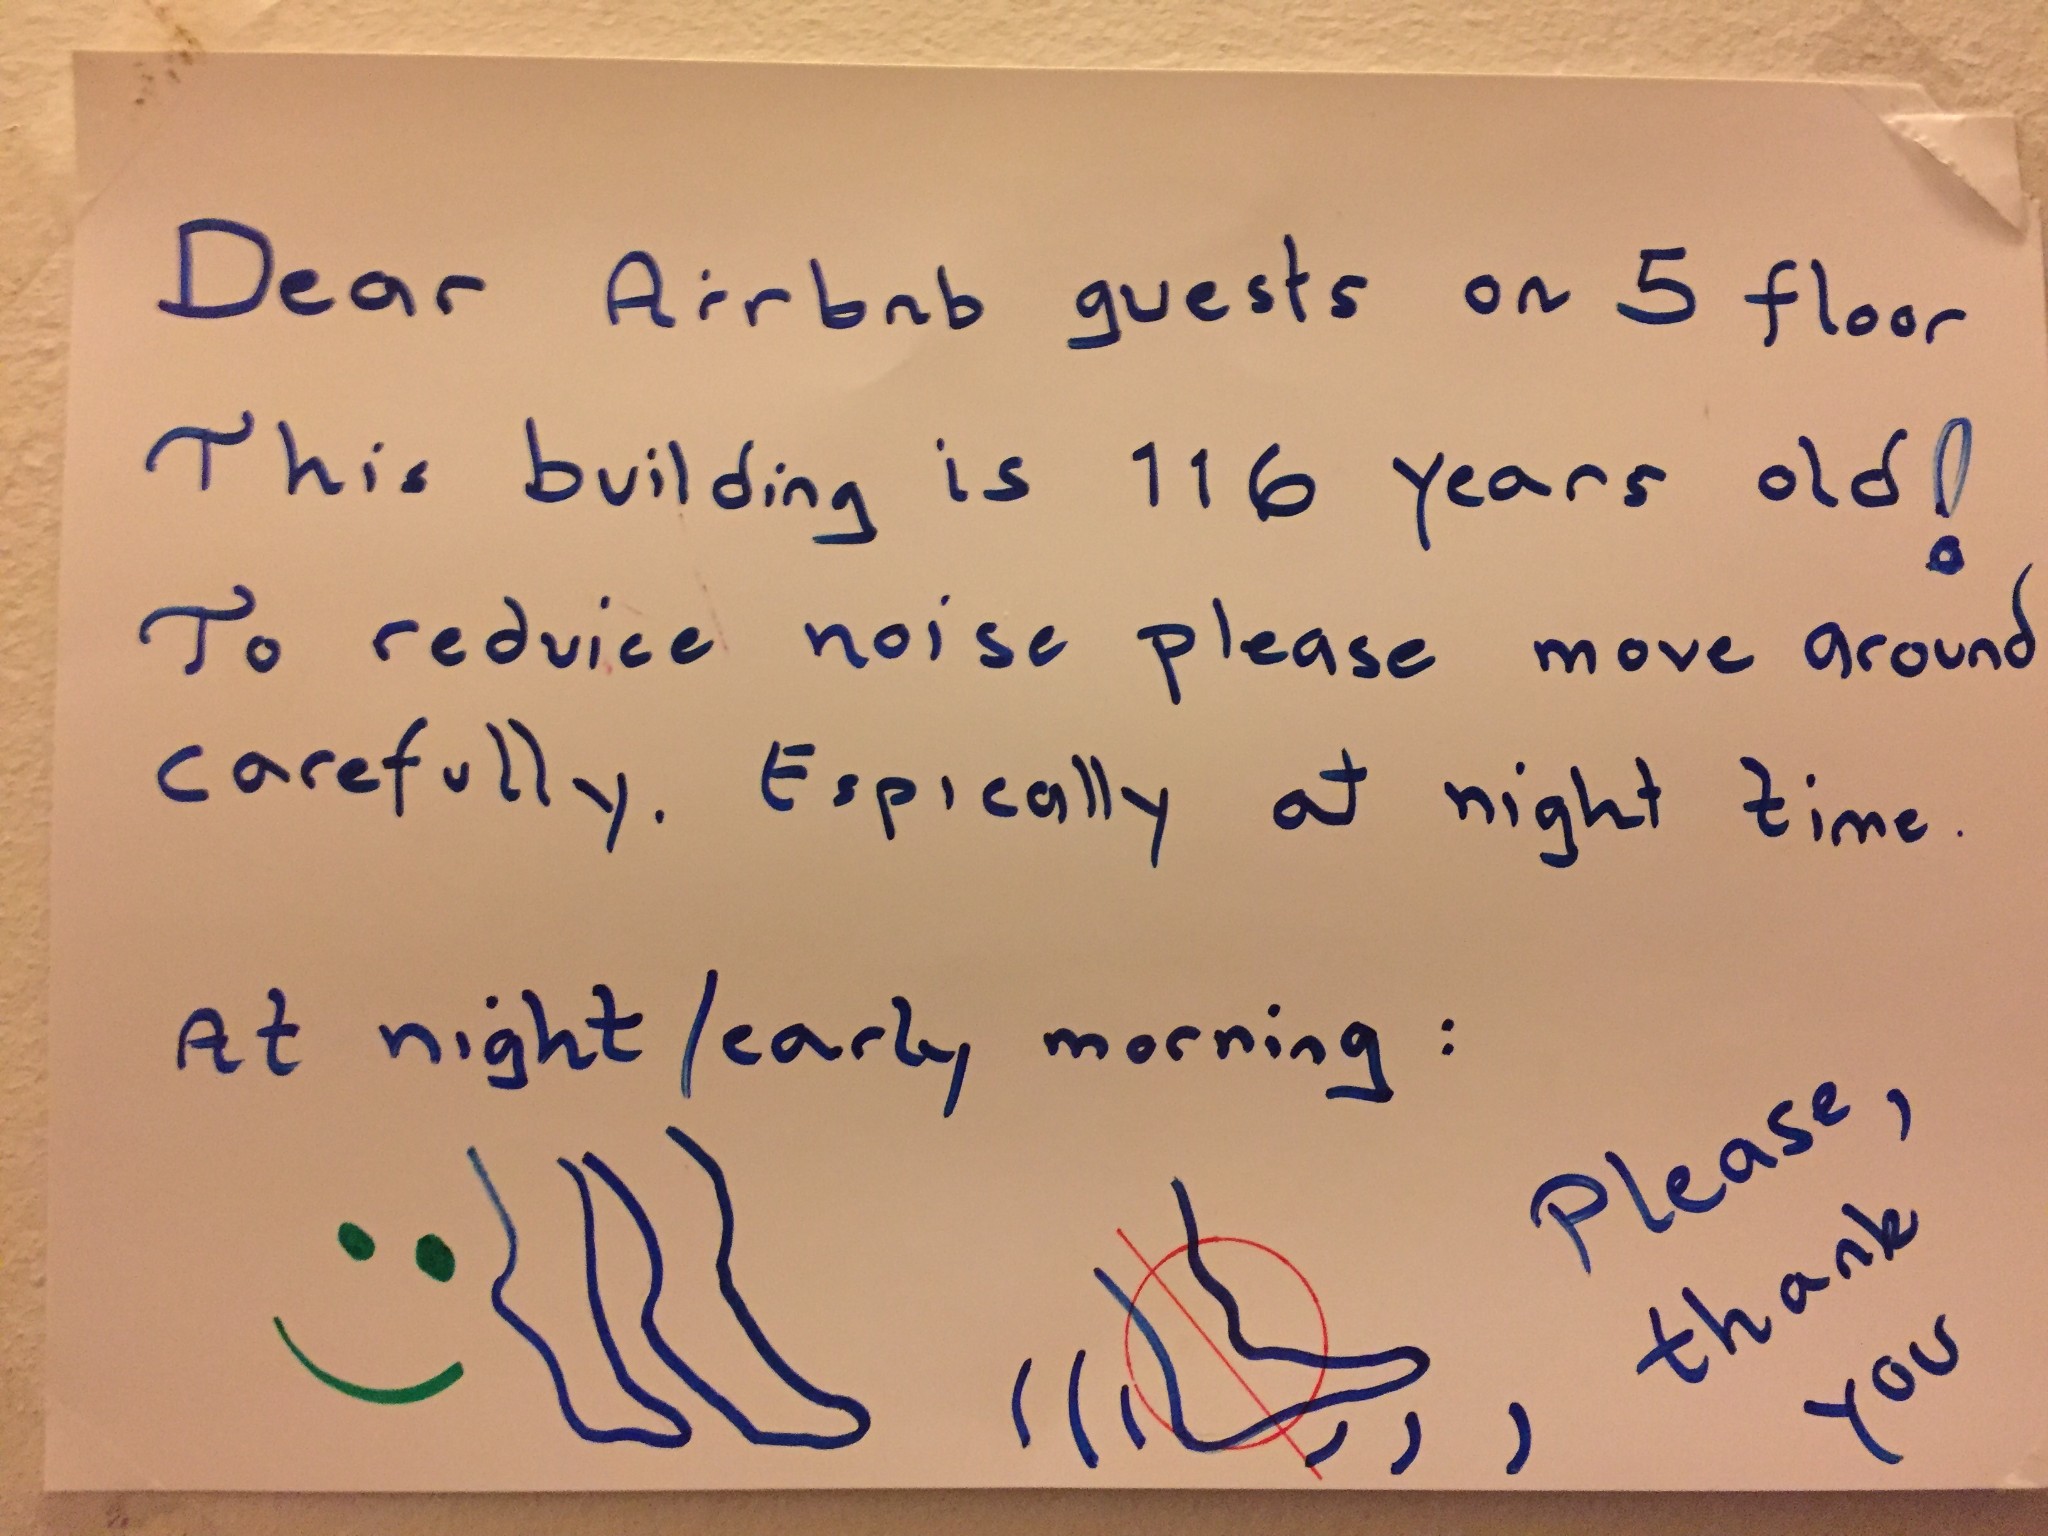 Dear Airbnb guests on 5 floor
This building is 116 years old!
To reduice noise please move around
carefully. Espically at night time.
At night/early morning:
Please,
thank
you